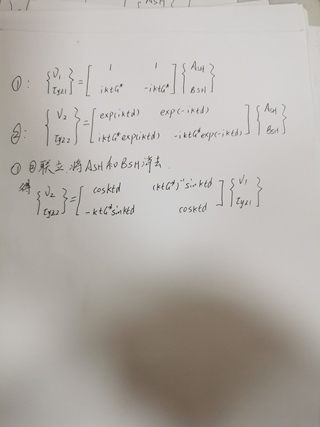 ①: {V₁ τyz1} = [1 1 iktG* -iktG*] {ASH BSH}
②: {V₂ τyz2} = [exp(iktd) exp(-iktd) iktG*exp(iktd) -iktG*exp(-iktd)] {ASH BSH}
①②联立,将ASH和BSH消去.
得 {V₂ τyz2} = [cosktd (ktG*)⁻¹sinktd -ktG*sinktd cosktd] {V₁ τyz1}